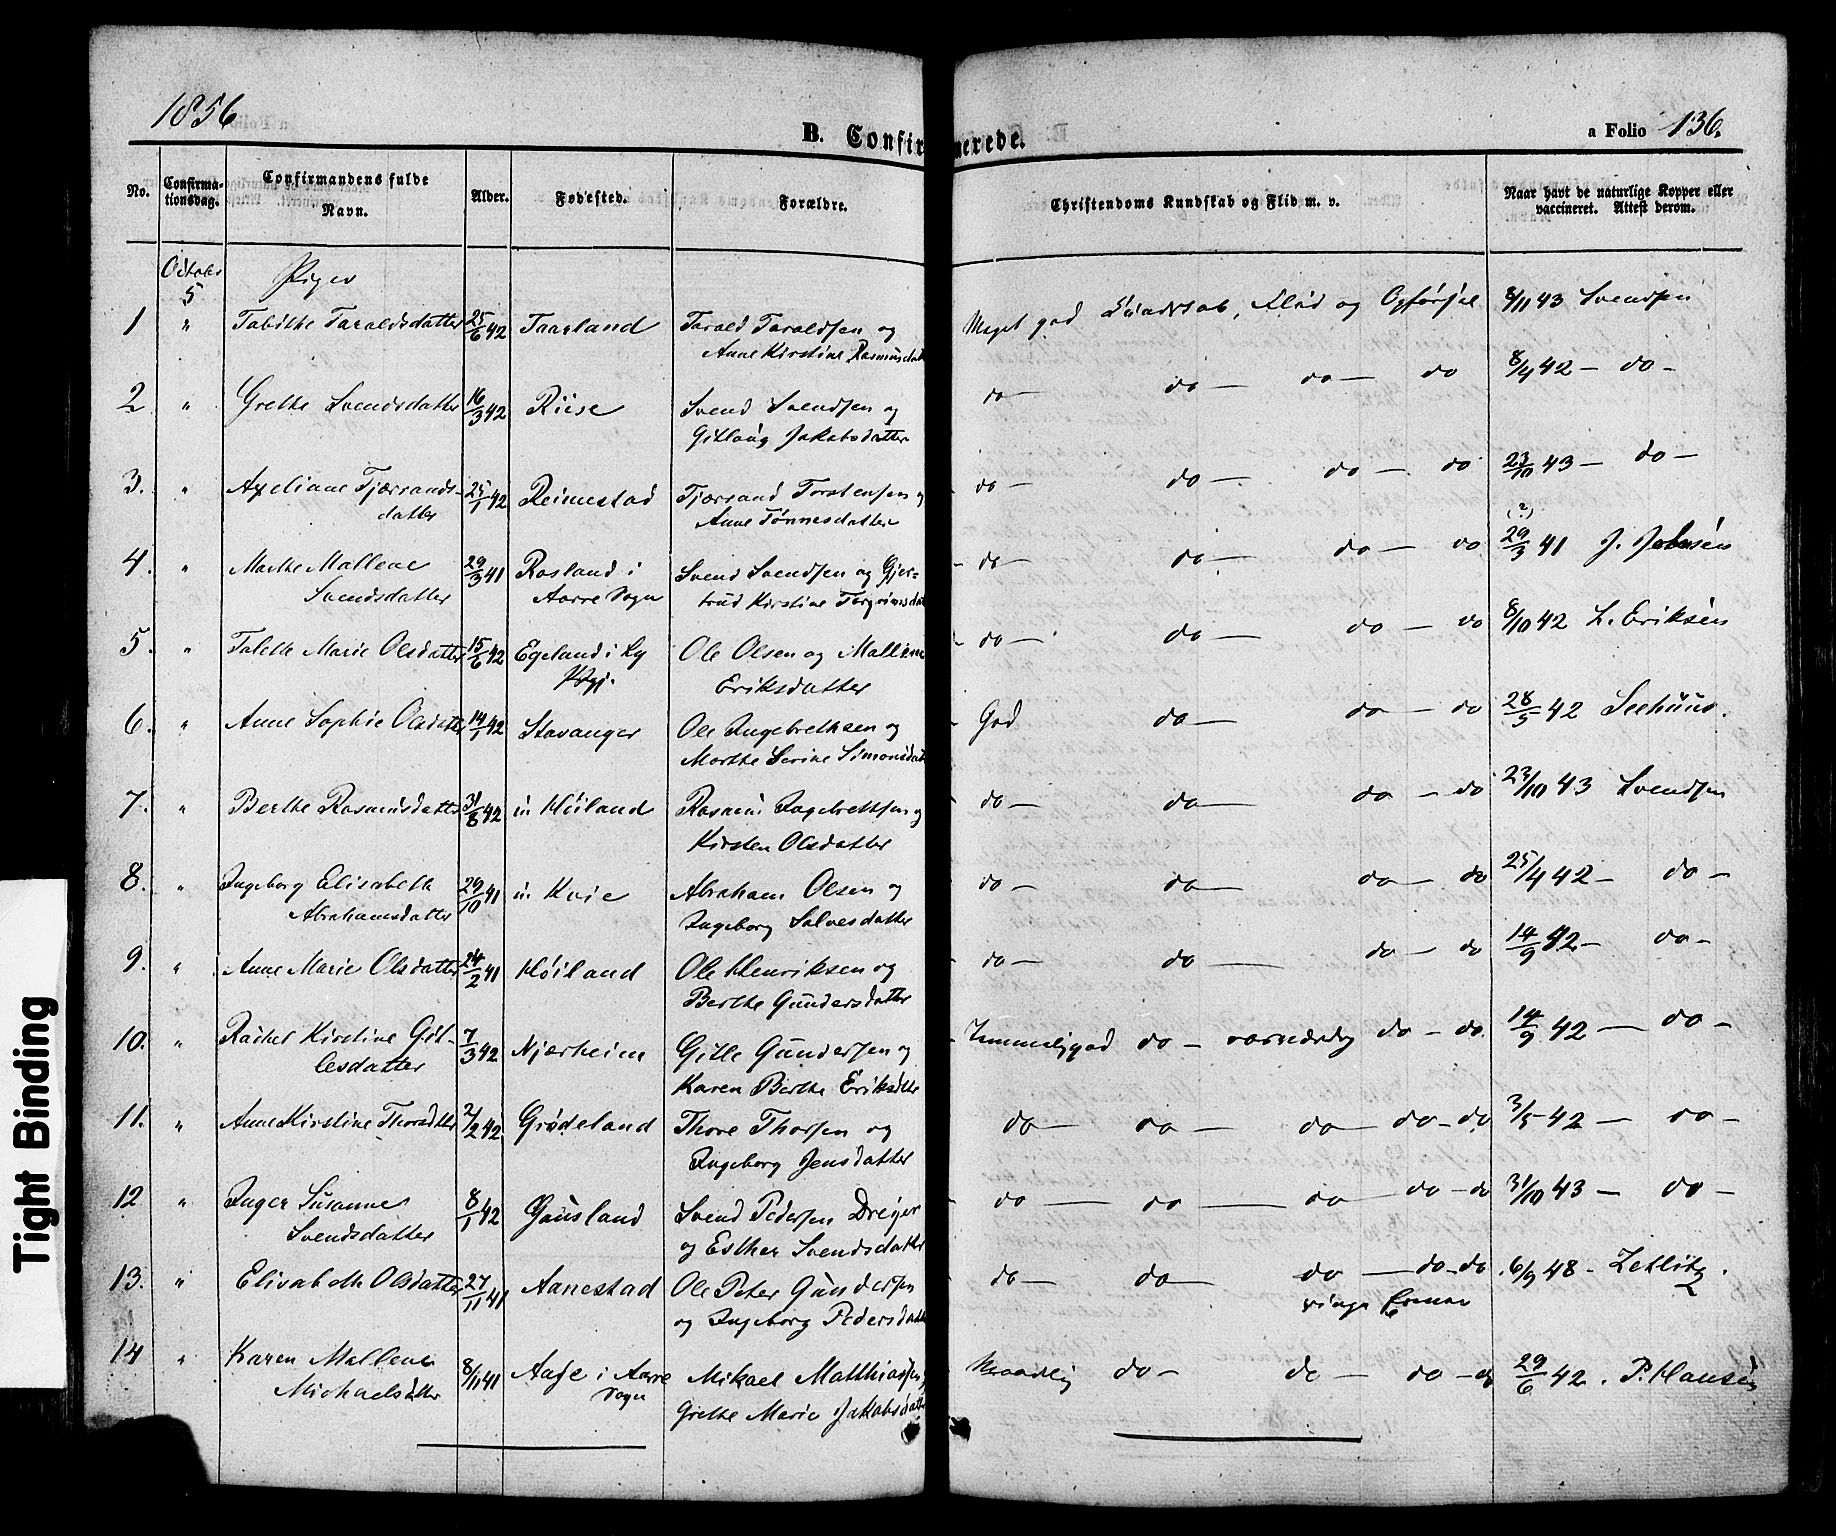 1856
B. Confirmerede.
a Folio 136.
No. Confirmationsdag. Confirmandens fulde Navn. Alder. Fødested. Forældre. Christendoms Kundskab og Flid m. v. Naar havt de naturlige Kopper eller vaccineret. Attest derom.
October 5 Piger
1 " Tabithe Taraldsdatter 25/6 42 Taarland Tarald Taraldsen og Meget god Kundskab, Flid og Opførsel 8/11 43 Svendsen
Anne Kirstine Rasmusdatt
2 " Grethe Svendsdatter 16/3 42 Riise Svend Svendsen og do — do — do — do 8/4 42 — do —
Gitlaug Jakobsdatter
3. " Axeliane Tjærrands- 25/1 42 Reimestad Tjærrand Torstensen og do — do — do — do 23/10 43 — do —
datter Anne Tønnesdatter
(?)
4. " Marthe Mallene 29/3 41 Rosland i Svend Svendsen og Gjer- do — do — do — do 29/3 41 J. Jabnsen
Svendsdatter Aarre Sogn trud Kirstine Torgrimsdat
5. " Talette Marie Olsdatter 15/6 42 Egeland i Ly Ole Olsen og Mallene do — do — do — do 8/10 42 L. Eriksen
Prgj. Eriksdatter
6. " Anne Sophie Olsdatter 14/1 42 Stavanger Ole Ingebrethsen og God do — do — do 28/5 42 Seehuus.
Marthe Serine Simonsdat
7. " Berthe Rasmusdatter 31/8 42 in Høiland Rasmus Ingebrethsen og do — do — do — do 23/10 43 Svendsen
Kirsten Olsdatter
8. " Ingeborg Elisabeth 29/10 41 in Kvie Abraham Olsen og do — do — do — do 25/4 42 — do —
Abrahamsdatter Ingeborg Salvesdatter
9. " Anne Marie Olsdatter 24/2 41 Høiland Ole Henriksen og do — do — do — do 14/9 42 — do —
Berthe Gundersdatter
10. " Rachel Kirstine Git- 7/3 42 Njærheim Gitle Gundersen og Temmelig god do — do — do. 14/9 42 — do —
lesdatter Karen Berthe Eriksdtte
11. " Anne Kirstine Thorsdtter 2/2 42 Grødeland Thore Thorsen og do — do — do — do — do 3/5 42 — do —
Ingeborg Jensdatter
12 " Inger Susanne 8/1 42 Gausland Svend Pedersen Dreyer do — do — do — do — do 31/10 43 — do —
Svendsdatter og Esther Svendsdatter
13. " Elisabeth Olsdatter 27/11 41 Aanestad Ole Peter Gundersen do — do — do — do — do. 6/9 48 — Zetlitz.
og Ingeborg Pedersdatt ringe
14 " Karen Mallene 8/11 41 Aase i Aarre Mikael Matthiassen Maadelig do — do — do — do 29/6 42. P. Hansen
Michaelsdtter Sogn Grethe Marie Jakobsdatte
Tight Binding